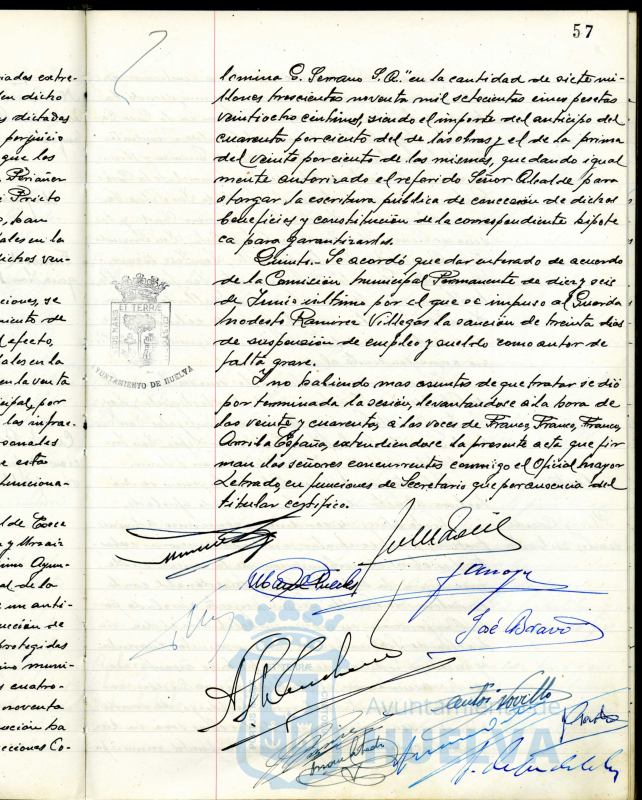 57
iadas extre-
en dicho
s dictadas
perjuicio
que los
Periañez
Prieto
, han
dales en la
dichos ven-
ciones, se
miento de
l efecto,
dales en la
en la venta
cipal, por
las infrac-
sonales
e esta
funciona-
l de Esce
a y Urraiz
simo Ayun-
al de la
e un anti-
rucción de
protegidas
ino muni-
s cuatro-
noventa
ución ha
cciones Co-
lomina G. Serrano S.A." en la cantidad de siete mi-
llones trescientas noventa mil setecientas cinco pesetas
veintiocho céntimos, siendo el importe del anticipo del
cuarenta por ciento del de las obras y el de la prima
del veinte por ciento de las mismas, quedando igual
mente autorizado el referido Señor Alcalde para
otorgar la escritura pública de concesión de dichos
beneficios y constitución de la correspondiente hipote
ca para garantizarlos.
Quinto.- Se acordó quedar enterado de acuerdo
de la Comisión Municipal Permanente de diez y seis
de Junio último por el que se impuso al Guarda
Modesto Ramirez Villegas la sanción de treinta dias
de suspensión de empleo y sueldo como autor de
falta grave.
Y no habiendo mas asuntos de que tratar se dió
por terminada la sesión, levantandose a la hora de
las veinte y cuarenta, a las voces de Franco, Franco, Franco,
Arriba España, extendiendose la presente acta que fir
man los señores concurrentes conmigo el Oficial Mayor
Letrado, en funciones de Secretario que por ausencia del
titular certifico.
AYUNTAMIENTO DE HUELVA
José Bravo
Ayuntamiento de
HUELVA